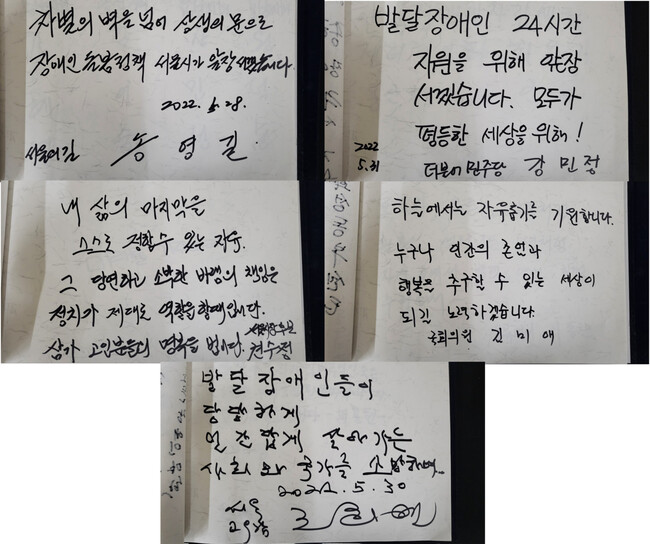 차별의 벽을 넘어 상생의 문으로
장애인 돌봄정책 서울시가 앞장 서겠습니다.
2022. 5. 28.
서울의 길 송영길
발달장애인 24시간
지원을 위해 앞장
서겠습니다. 모두가
평등한 세상을 위해!
2022
5.31 더불어민주당 강민정
내 삶의 마지막을
스스로 정할 수 있는 자유.
그 당연하고 소박한 바램의 책임은
정치가 제대로 역할을 할 때입니다.
삼가 고인분들의 명복을 빕니다. 권수정
하늘에서는 자유롭기를 기원합니다.
누구나 인간의 존엄과
행복을 추구할 수 있는 세상이
되길 노력하겠습니다.
국회의원 김미애
발달장애인들이
당당하게
인간답게 살아가는
사회와 국가를 소망하며..
2022.5.30
서울
교육감 조희연